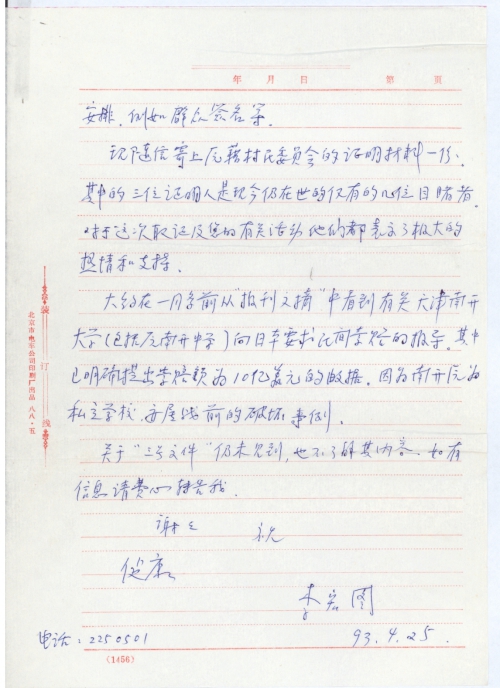 年 月 日 第 页
安排，例如群众签名等。
现随信寄上原籍村民委员会的证明材料一份，
其中的三位证明人是现今仍在世的仅有的几位目睹者。
对于这次取证及您的有关活动他们都表示了极大的
热情和支持。
大约在一月多前从"报刊文摘"中看到有关天津南开
大学(包括原南开中学)向日本要求民间索赔的报导。其中
已明确提出索赔额为10亿美元的数据。因为南开原为
私立学校，亦属战前的破坏事例。
关于"三号文件"仍未见到，也不了解其内容。如有
信息请费心转告我。
谢谢 祝
健康
李宏图
电话：2250501 93.4.25.
(1456)
装订线
北京市电车公司印刷厂出品 八八·五